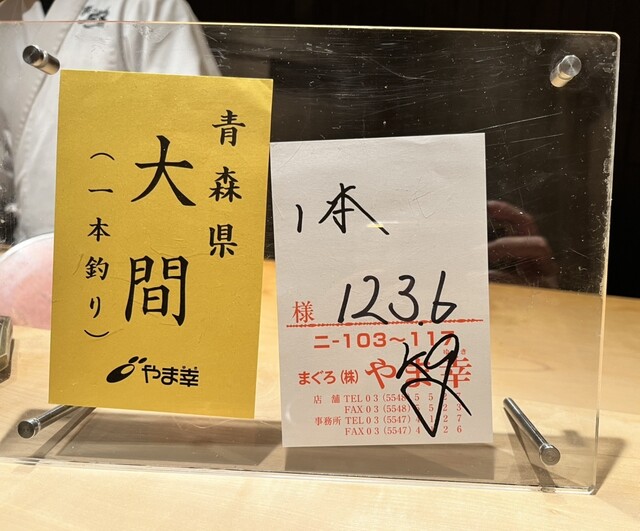 青森県
大間
(一本釣り)
やま幸
1本
様 123.6
ニ-103~117
まぐろ(株) やま幸
店舗 TEL 03 (5548)
FAX 03 (5548)
事務所 TEL 03 (5547)
FAX 03 (5547)